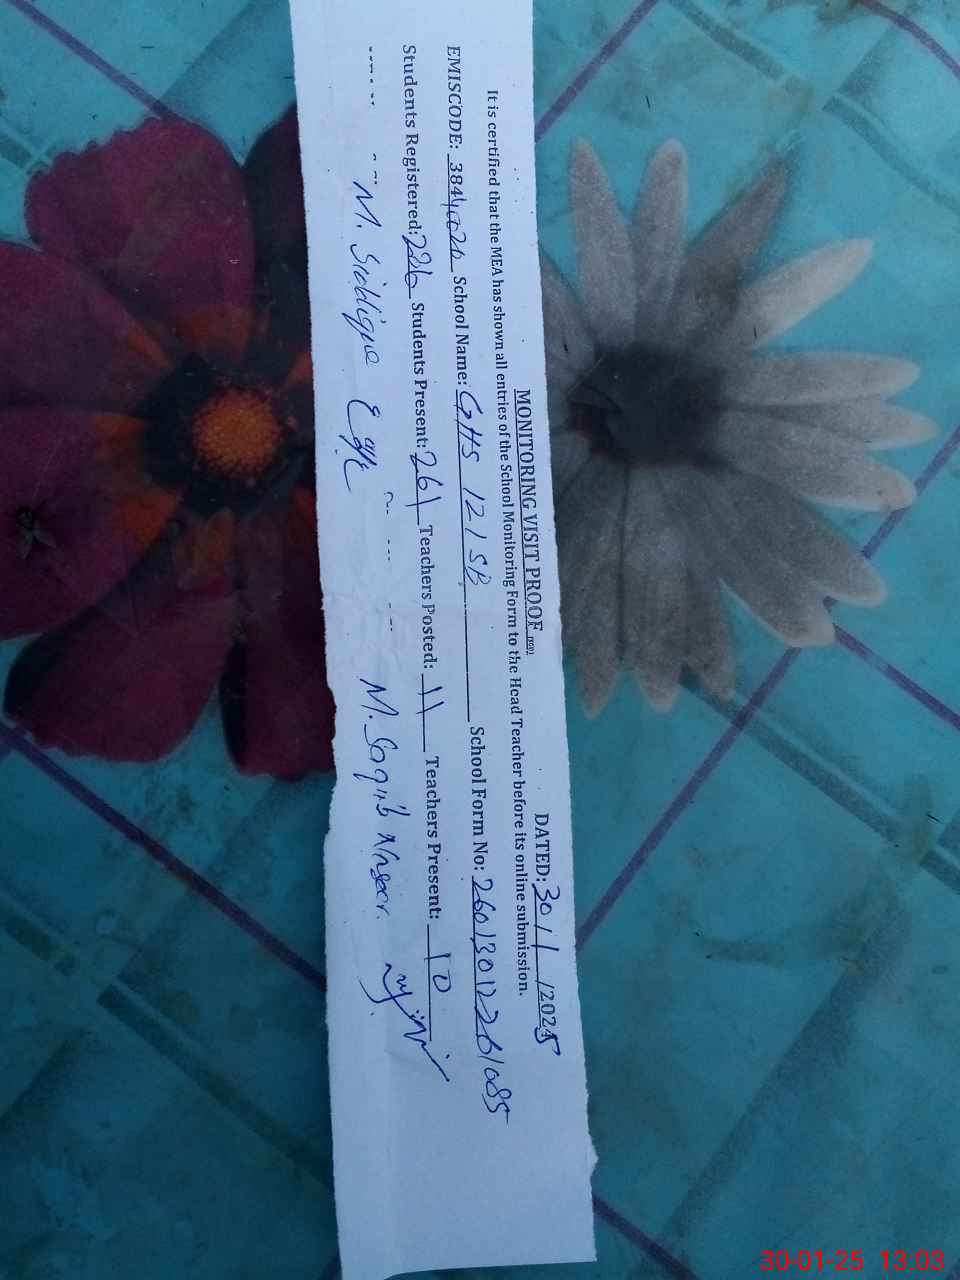 MONITORING VISIT PROOF DATED: 30/1/2025
It is certified that the MEA has shown all entries of the School Monitoring Form to the Head Teacher before its online submission.
EMISCODE: School Name: GHS 121 SB School Form No:
Students Registered: Students Present: 261 Teachers Posted: 11 Teachers Present: 10
M. Siddique M. Saqib
30-01-25 13:03